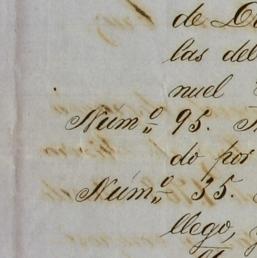 de D
las del
nuel
Núm.º 95.
do por
Núm.º 35.
llego,